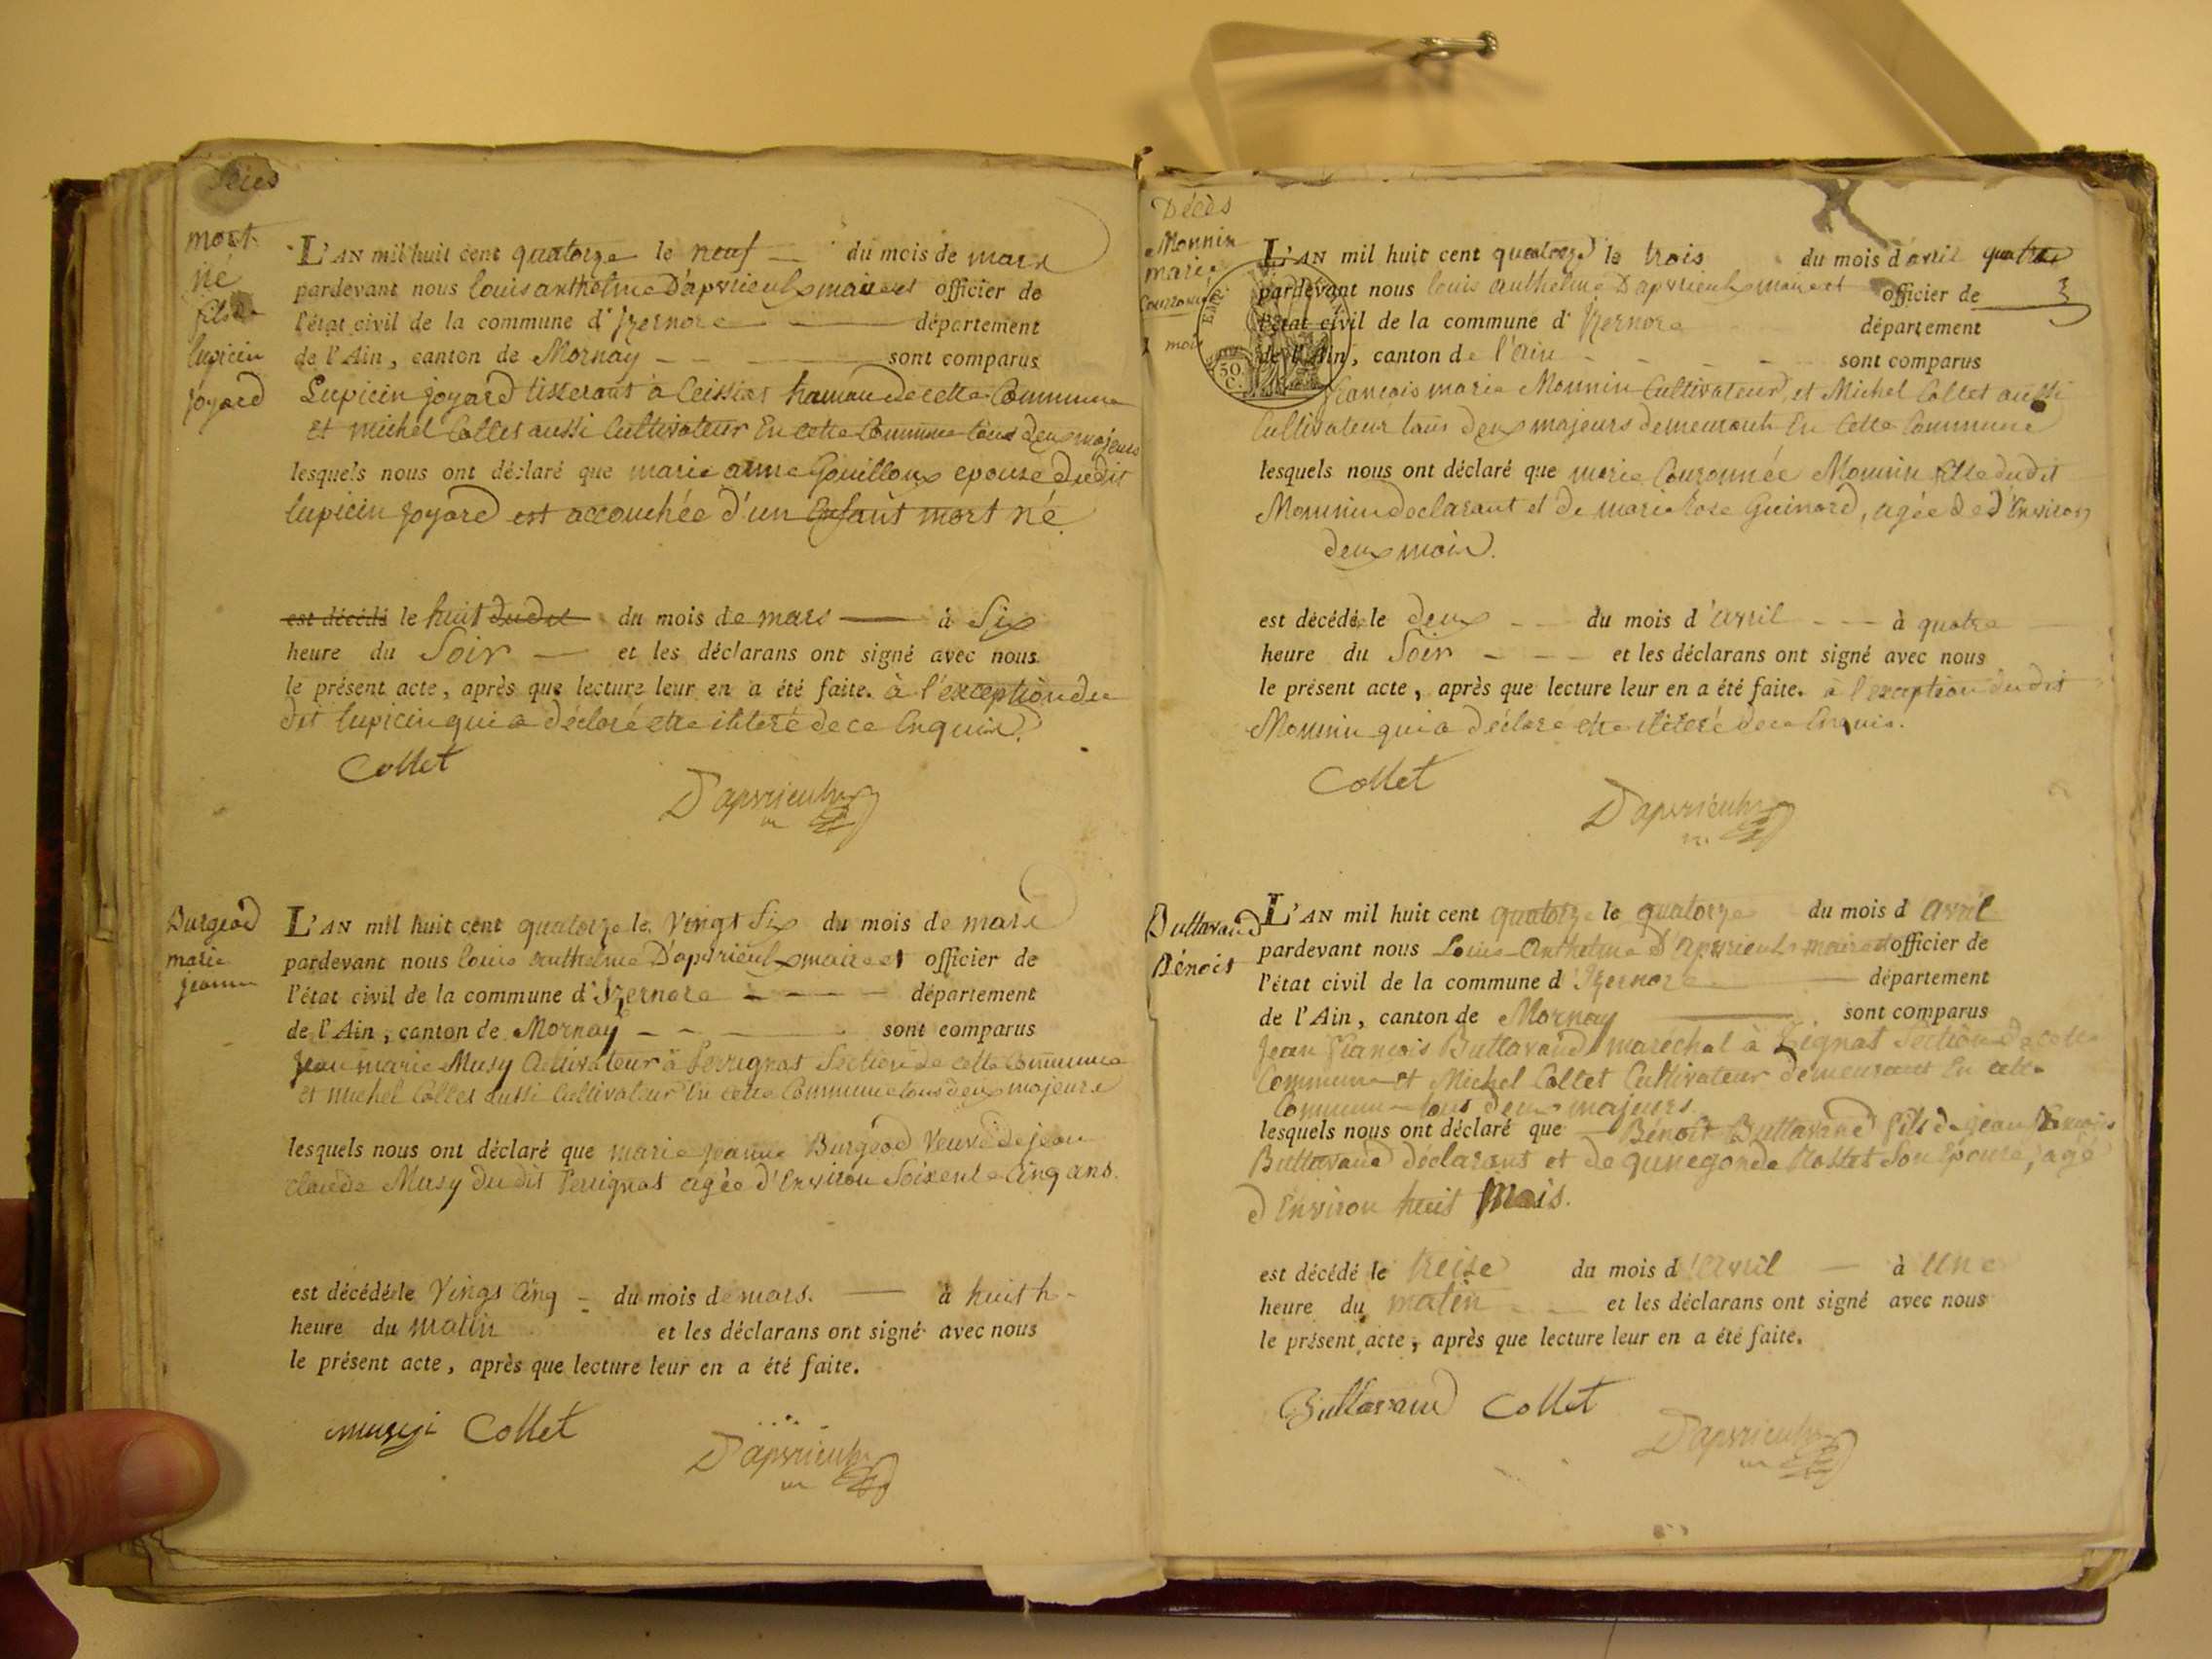 Décès
mort
né
fils de
lupicin
joyard
L'AN mil huit cent quatorze le neuf du mois de mars
pardevant nous louis anthelme D'apvrieulx maire et officier de
l'état civil de la commune d'Izernore département
de l'Ain, canton de Mornay sont comparus
Lupicin joyard tisserant à Ceissiat hamau de cette Commune
et michel Collet aussi Cultivateur En cette Commune tous deux majeurs
lesquels nous ont déclaré que marie anne Gouilloux epouse dudit
lupicin joyard est accouchée d'un Enfant mort né
est décédé le huit dudit du mois de mars à Six
heure du Soir et les déclarans ont signé avec nous
le présent acte, après que lecture leur en a été faite. à l'exception du
dit lupicin qui a déclaré etre iliteré de ce Enquis.
Collet
D'apvrieulx
Burgeod
marie
jeanne
L'AN mil huit cent quatorze le Vingt Six du mois de mars
pardevant nous louis anthelme D'apvrieulx maire et officier de
l'état civil de la commune d'Izernore département
de l'Ain, canton de Mornay sont comparus
Jean marie Musy Cultivateur à Perrignat Section de cette Commune
et michel Collet aussi Cultivateur En cette Commune tous deux majeurs
lesquels nous ont déclaré que marie jeanne Burgeod Veuve de jean
claude Musy dudit Perrignat agée d'Environ Soixente Cinq ans.
est décédée le Vingt Cinq du mois de mars. à huit h
heure du matin et les déclarans ont signé avec nous
le présent acte, après que lecture leur en a été faite.
musy Collet
D'apvrieulx
Décès
Monnin
marie
Couronnée
mois
L'AN mil huit cent quatorze le trois du mois d'avril quatre
pardevant nous louis anthelme D'apvrieulx maire et officier de
l'état civil de la commune d'Izernore département
de l'Ain, canton de l'ain sont comparus
50
C.
françois marie Monnin Cultivateur, et Michel Collet aussi
Cultivateur tous deux majeurs demeurant En Cette Commune
lesquels nous ont déclaré que marie Couronnée Monnin fille dudit
Monnin declarant et de marie Rose Guinard, agée de d'Environ
deux mois.
est décédée le deux du mois d'avril à quatre
heure du Soir et les déclarans ont signé avec nous
le présent acte, après que lecture leur en a été faite. à l'exception dudit
Monnin qui a déclaré etre iliteré de ce Enquis.
Collet
D'apvrieulx
Buttavand
Bénoit
L'AN mil huit cent quatorze le quatorze du mois d avril
pardevant nous Louis Anthelme D'apvrieulx maire et officier de
l'état civil de la commune d'Izernore département
de l'Ain, canton de Mornay sont comparus
Jean françois Buttavand marechal à Tignat Section de cette
Commune et Michel Collet Cultivateur demeurant En cette
Commune tous deux majeurs.
lesquels nous ont déclaré que Bénoit Buttavand fils de jean françois
Buttavand déclarant et de Cunegonde Rostet Son Epouse, agé
d Environ huit Mois.
est décédé le treise du mois d'avril à une
heure du matin et les déclarans ont signé avec nous
le présent acte, après que lecture leur en a été faite.
Buttavand Collet
D'apvrieulx